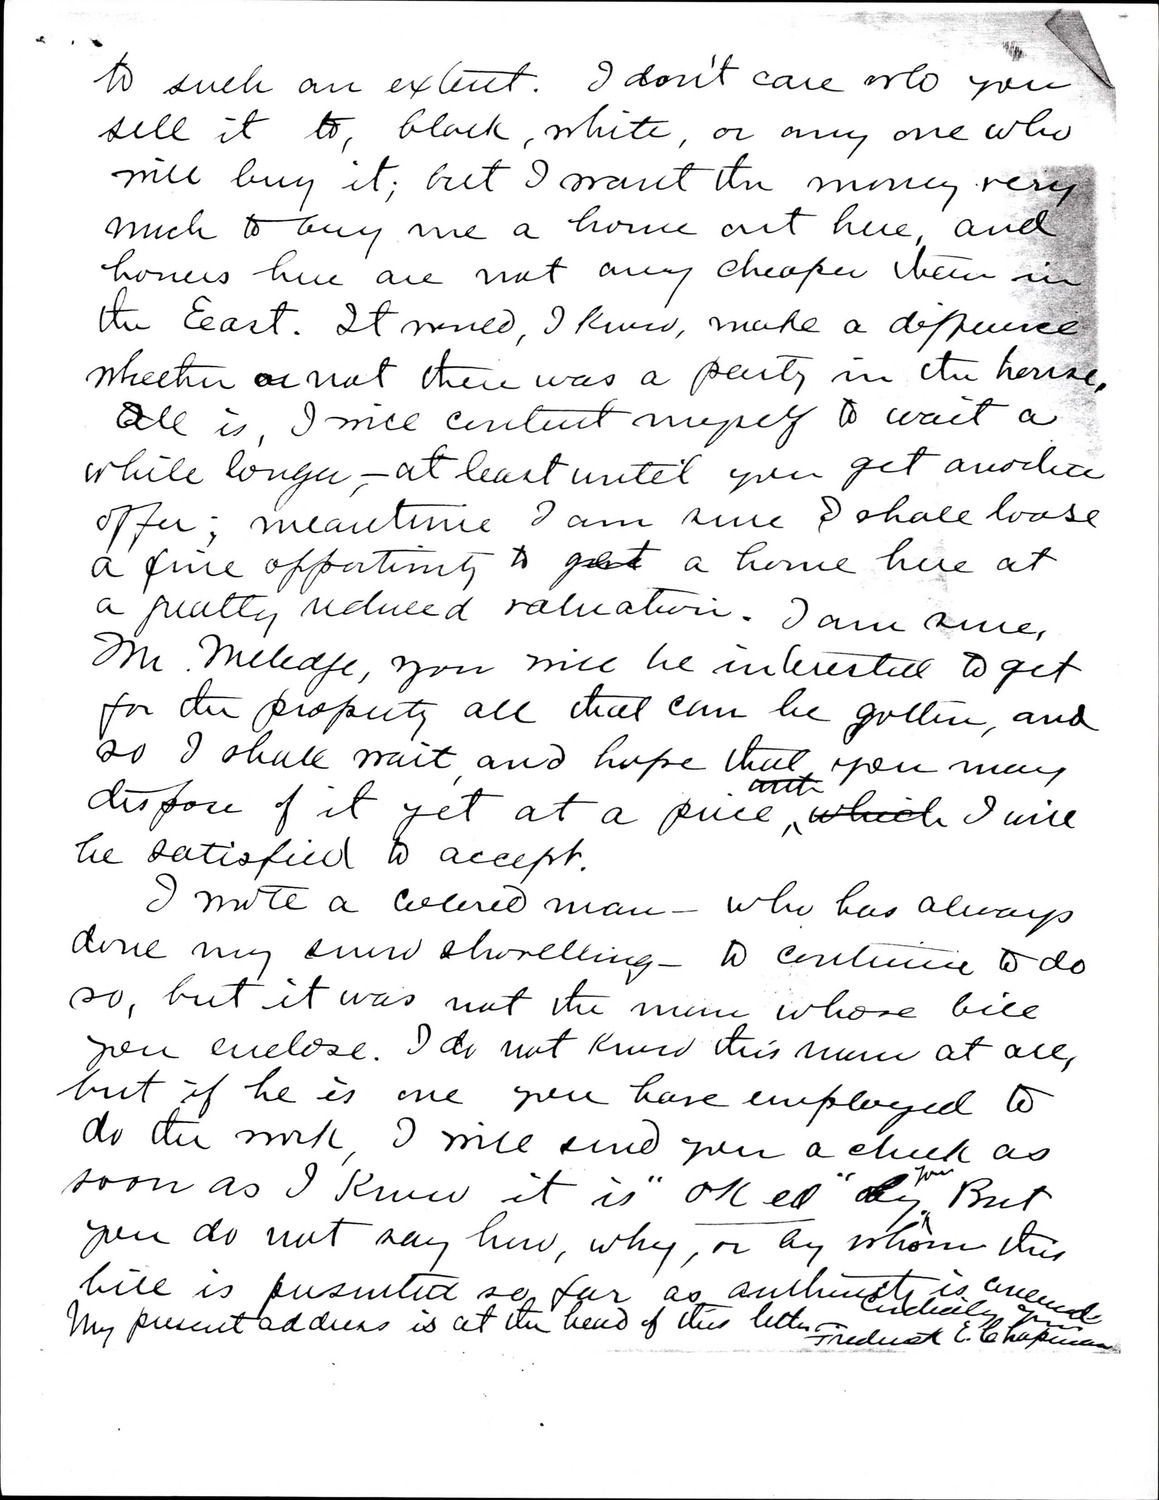 to such an extent. I don't care who you
sell it to, black, white, or any one who
will buy it; but I want the money very
much to buy me a home out here, and
homes here are not any cheaper than in
the East. It would, I know, make a difference
whether or not there was a party in the house.
All is, I will content myself to wait a
while longer, – at least until you get another
offer; meantime I am sure I shall loose
a fine opportunity to get a home here at
a greatly reduced valuation. I am sure,
Mr. Meledge, you will be interested to get
for the property all that can be gotten, and
so I shall wait, and hope that you may
dispose of it yet at a price, which I will
be satisfied to accept.
I wrote a colored man – who has always
done my snow shovelling – to continue to do
so, but it was not the man whose bill
you enclose. I do not know this man at all,
but if he is one you have employed to
do the work, I will send you a check as
soon as I know it is "OK ed" by you. But
you do not say how, why, or by whom this
bill is presented so far as authority is concerned.
My present address is at the head of this letter –
Cordially yours
Frederick E. Chapman